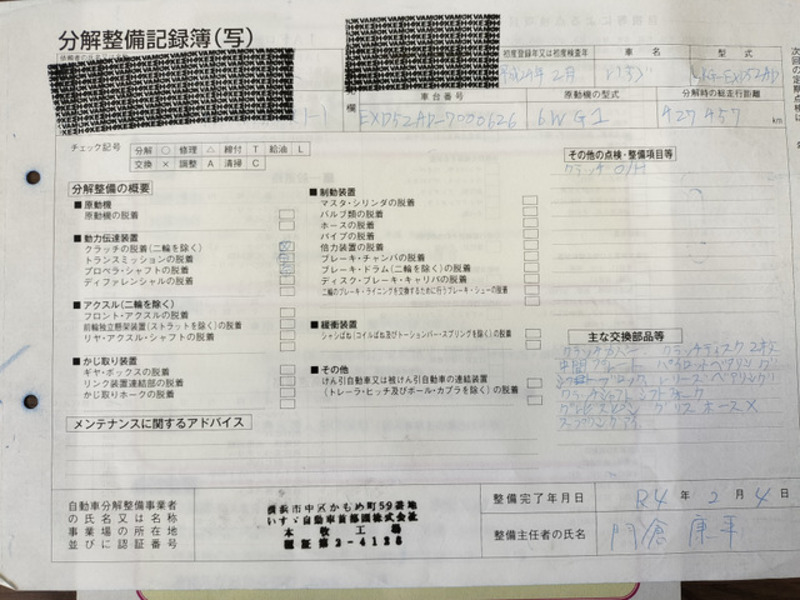 分解整備記録簿(写)
初度登録年又は初度検査年
車名
型式
平成24年2月
いすゞ
LKG-EXD52AD
欄
車台番号
原動機の型式
分解時の総走行距離
EXD52AD-7000626
6WG1
427457
km
チェック記号
分解 ○ 修理 △ 締付 T 給油 L
交換 × 調整 A 清掃 C
その他の点検・整備項目等
クラッチO/H
分解整備の概要
■原動機
原動機の脱着
■動力伝達装置
クラッチの脱着(二輪を除く)
トランスミッションの脱着
プロペラ・シャフトの脱着
ディファレンシャルの脱着
■アクスル(二輪を除く)
フロント・アクスルの脱着
前輪独立懸架装置(ストラットを除く)の脱着
リヤ・アクスル・シャフトの脱着
■かじ取り装置
ギヤ・ボックスの脱着
リンク装置連結部の脱着
かじ取りホークの脱着
■制動装置
マスタ・シリンダの脱着
バルブ類の脱着
ホースの脱着
パイプの脱着
倍力装置の脱着
ブレーキ・チャンバの脱着
ブレーキ・ドラム(二輪を除く)の脱着
ディスク・ブレーキ・キャリパの脱着
二輪のブレーキ・ライニングを交換するために行うブレーキ・シューの脱着
■緩衝装置
シャシばね(コイルばね及びトーションバー・スプリングを除く)の脱着
■その他
けん引自動車又は被けん引自動車の連結装置
(トレーラ・ヒッチ及びボール・カプラを除く)の脱着
主な交換部品等
クラッチカバー クラッチディスク 2枚
中間プレート パイロットベアリング
レリーズベアリング
クラッチシャフト シフトフォーク
グリスホース×
メンテナンスに関するアドバイス
自動車分解整備事業者
の氏名又は名称
事業場の所在地
並びに認証番号
横浜市中区かもめ町59番地
いすゞ自動車首都圏株式会社
本牧工場
認証第2-4128
整備完了年月日
R4年2月4日
整備主任者の氏名
門倉 康平